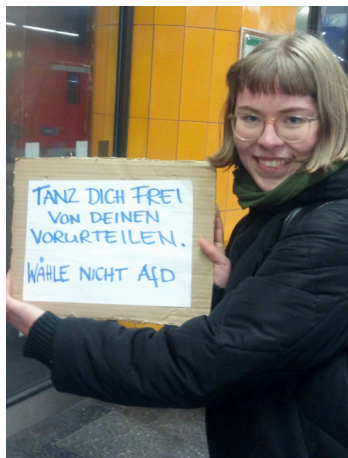 TANZ DICH FREI
VON DEINEN
VORURTEILEN.
WÄHLE NICHT AfD